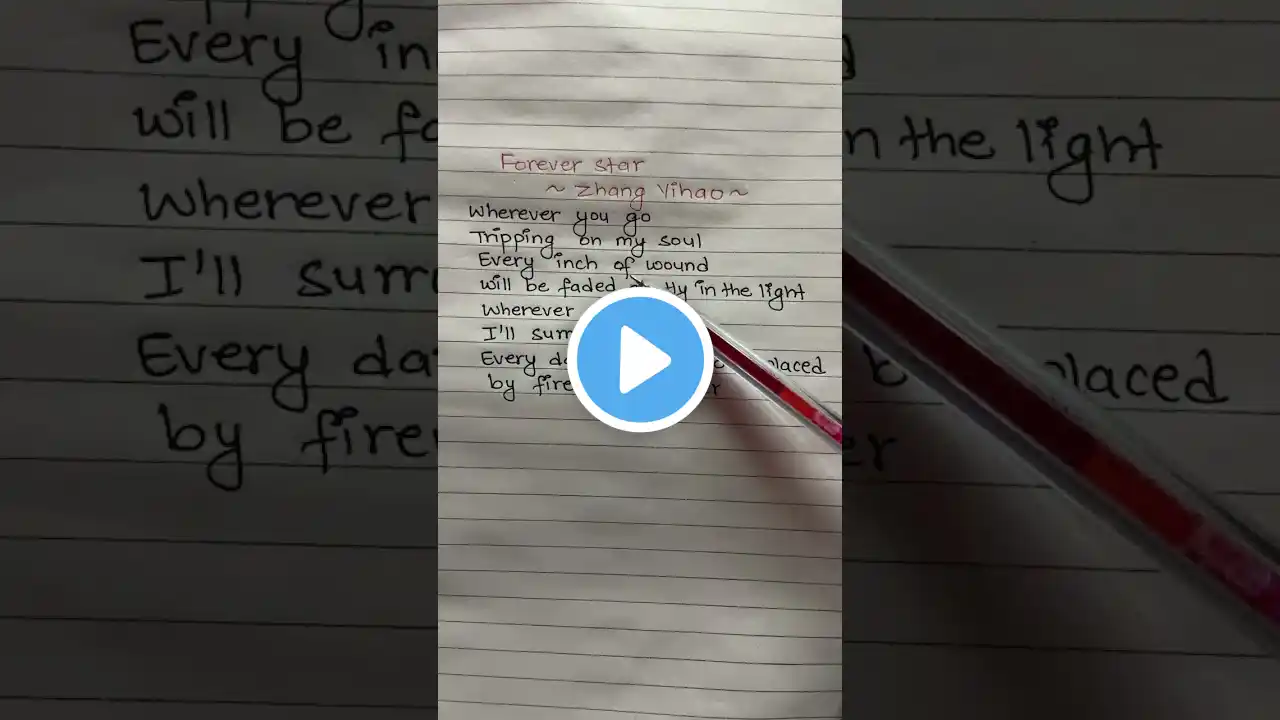 Forever star
~ Zhang Yihao ~
Wherever you go
Tripping on my soul
Every inch of wound
will be faded in the light
Wherever
I'll
Every placed
by